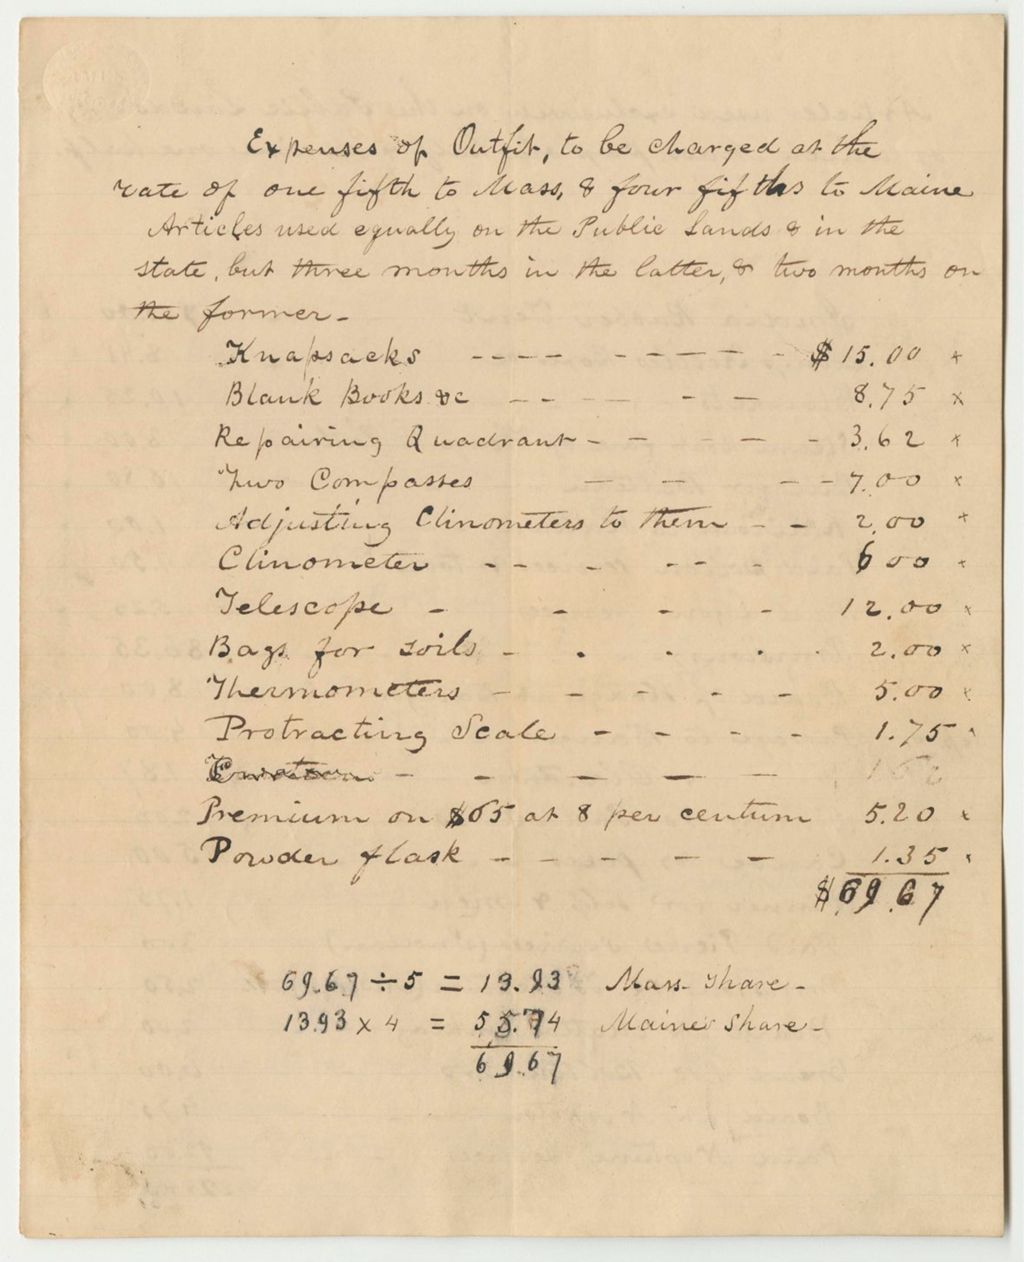 Expenses of Outfit, to be charged at the
rate of one fifth to Mass, & four fifths to Maine
Articles used equally on the Public Lands & in the
state, but three months in the latter, & two months on
the former -
Knapsacks ---- ------ $ 15.00 x
Blank Books &c -- -- - - 8.75 x
Repairing Quadrant - - - - - 3.62 x
Two Compasses - - - - 7.00 x
Adjusting Clinometers to them - - 2.00 x
Clinometer - - - - - - 6 00 x
Telescope - - - - 12.00 x
Bags for soils - - - - - 2.00 x
Thermometers - - - - - 5.00 x
Protracting Scale - - - - - 1.75 x
Premium on $65 at 8 per centum 5.20 x
Powder flask - - - - - 1.35 x
$69.67
69.67 ÷ 5 = 13.93 Mass. Share -
13.93 x 4 = 55.74 Maine Share -
69.67